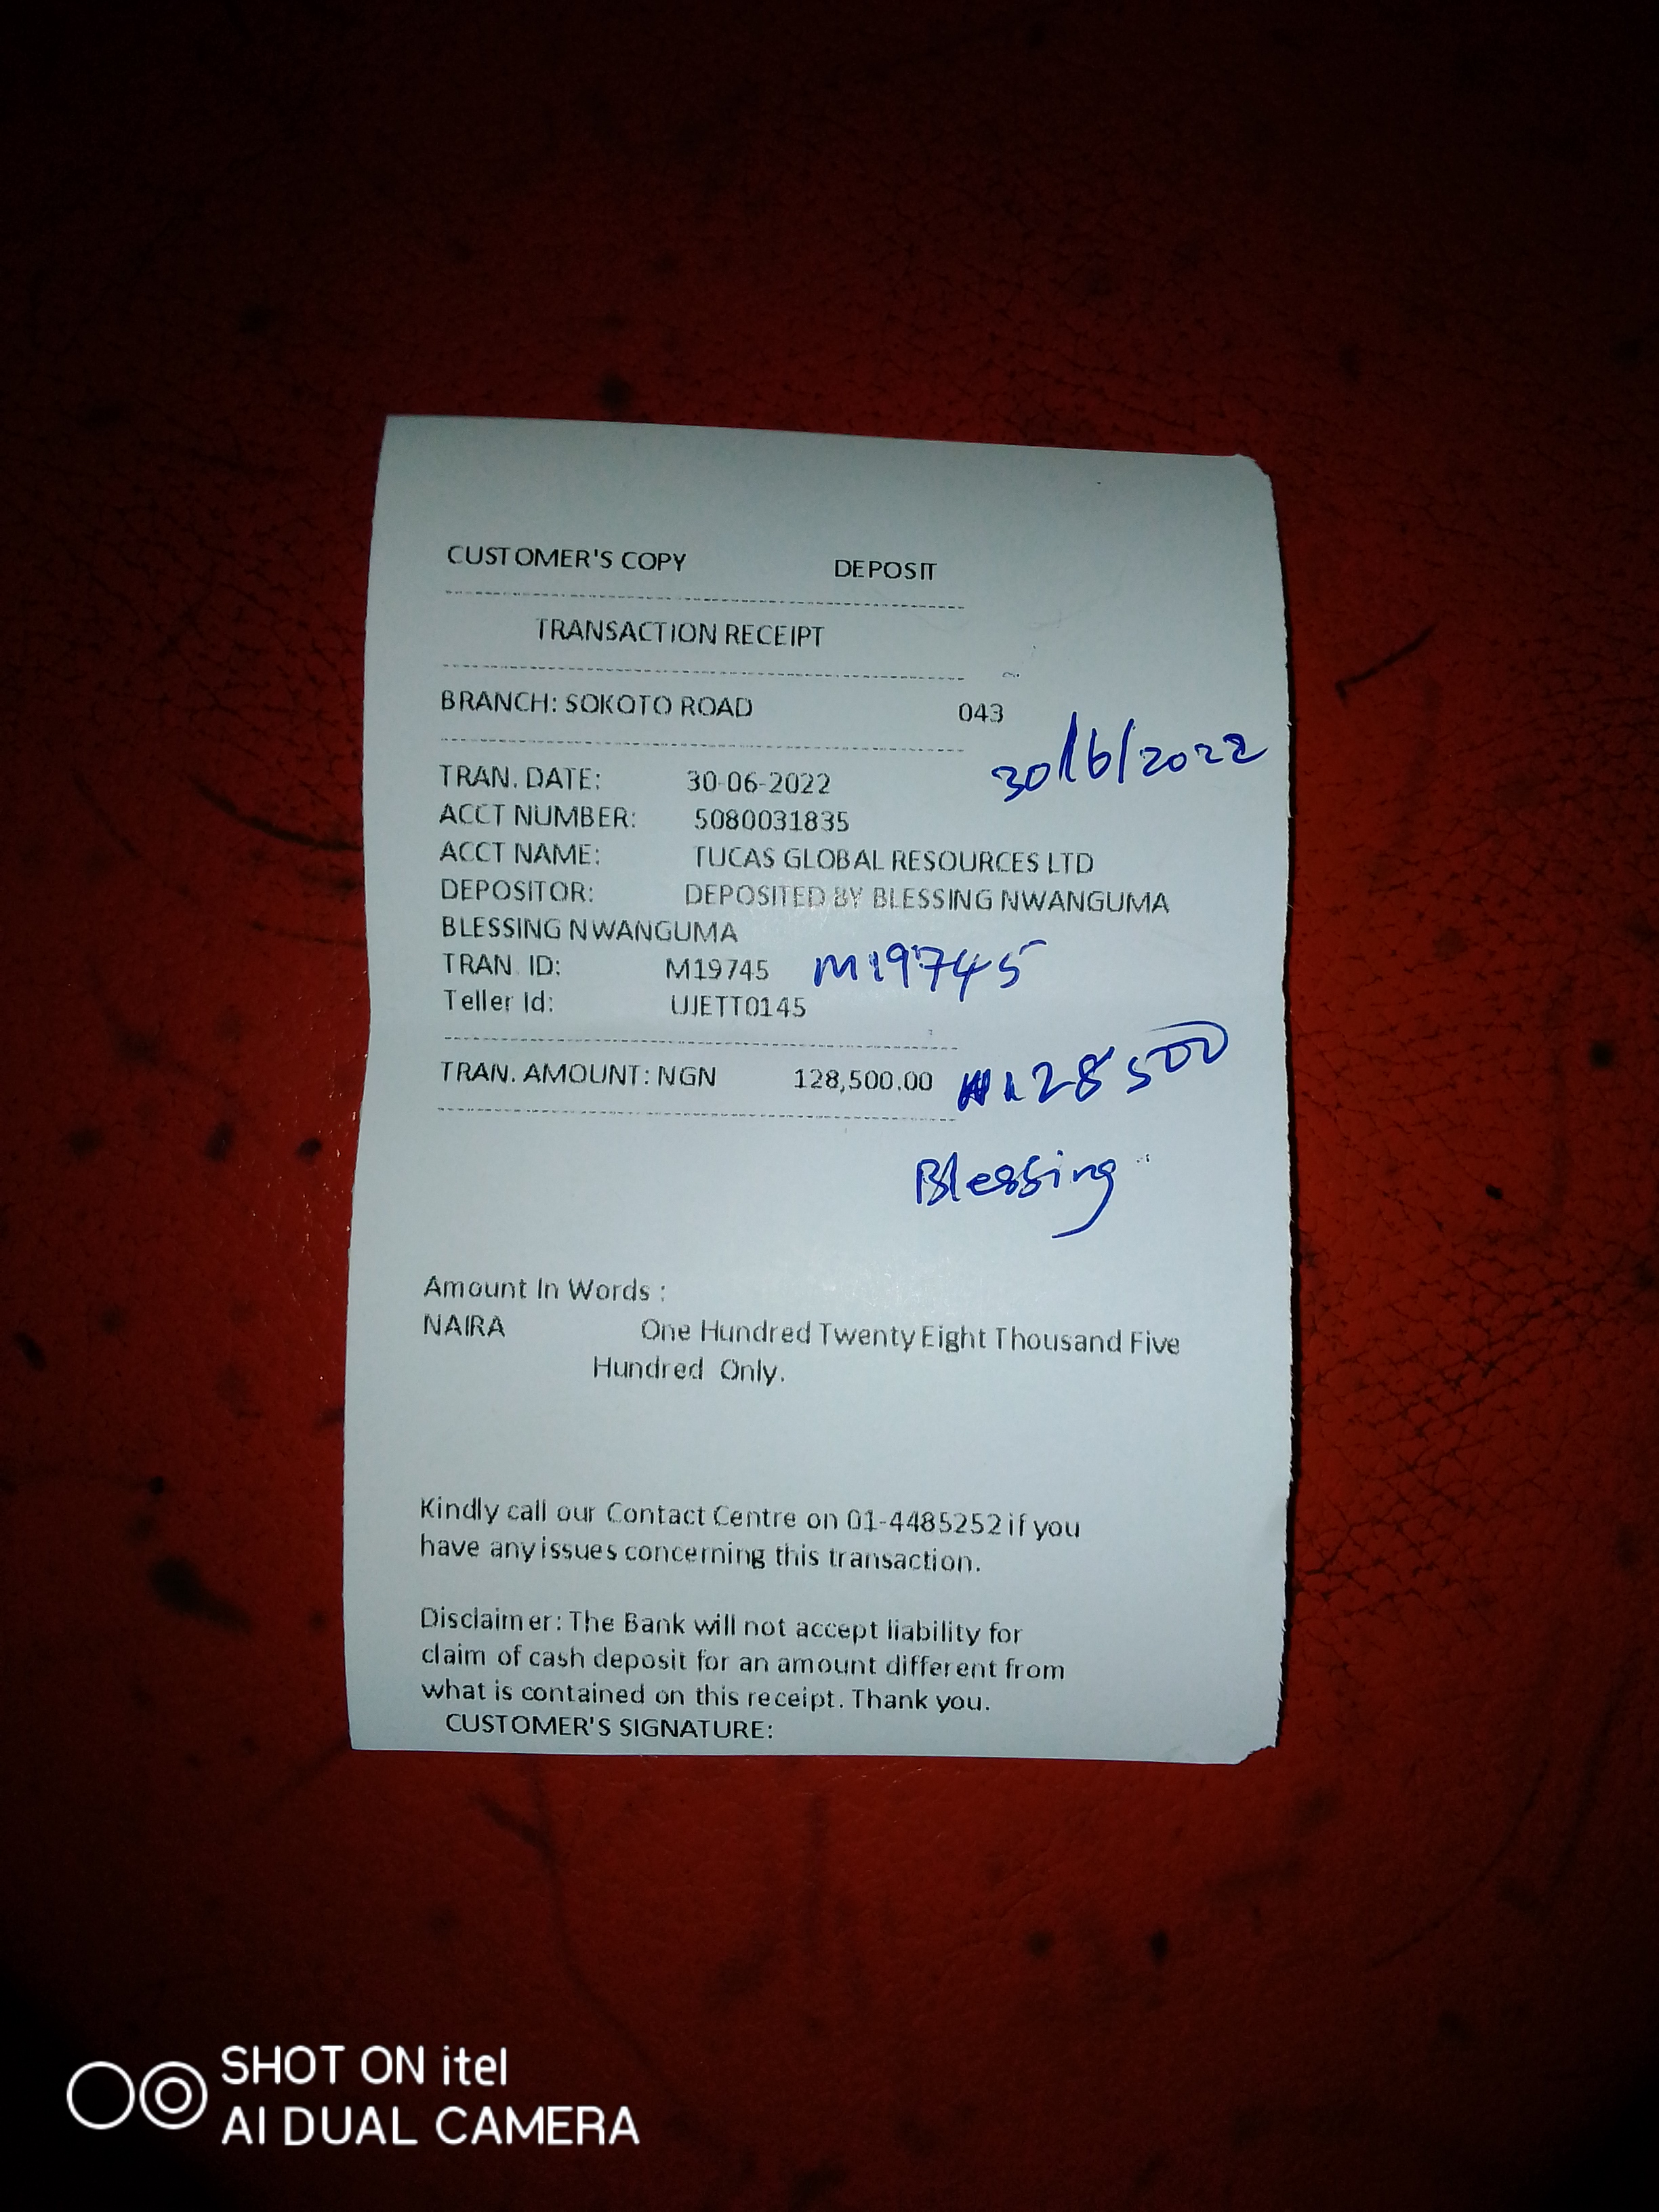 CUSTOMER'S COPY DEPOSIT
TRANSACTION RECEIPT
BRANCH: SOKOTO ROAD 043
30/6/2022
TRAN. DATE: 30-06-2022
ACCT NUMBER: 5080031835
ACCT NAME: TUCAS GLOBAL RESOURCES LTD
DEPOSITOR: DEPOSITED BY BLESSING NWANGUMA
BLESSING NWANGUMA
TRAN. ID: M19745 M19745
Teller Id: UJETT0145
TRAN. AMOUNT: NGN 128,500.00 ₦128500
Blessing
Amount In Words :
NAIRA One Hundred Twenty Eight Thousand Five
Hundred Only.
Kindly call our Contact Centre on 01-4485252 if you
have any issues concerning this transaction.
Disclaimer: The Bank will not accept liability for
claim of cash deposit for an amount different from
what is contained on this receipt. Thank you.
CUSTOMER'S SIGNATURE:
SHOT ON itel
AI DUAL CAMERA